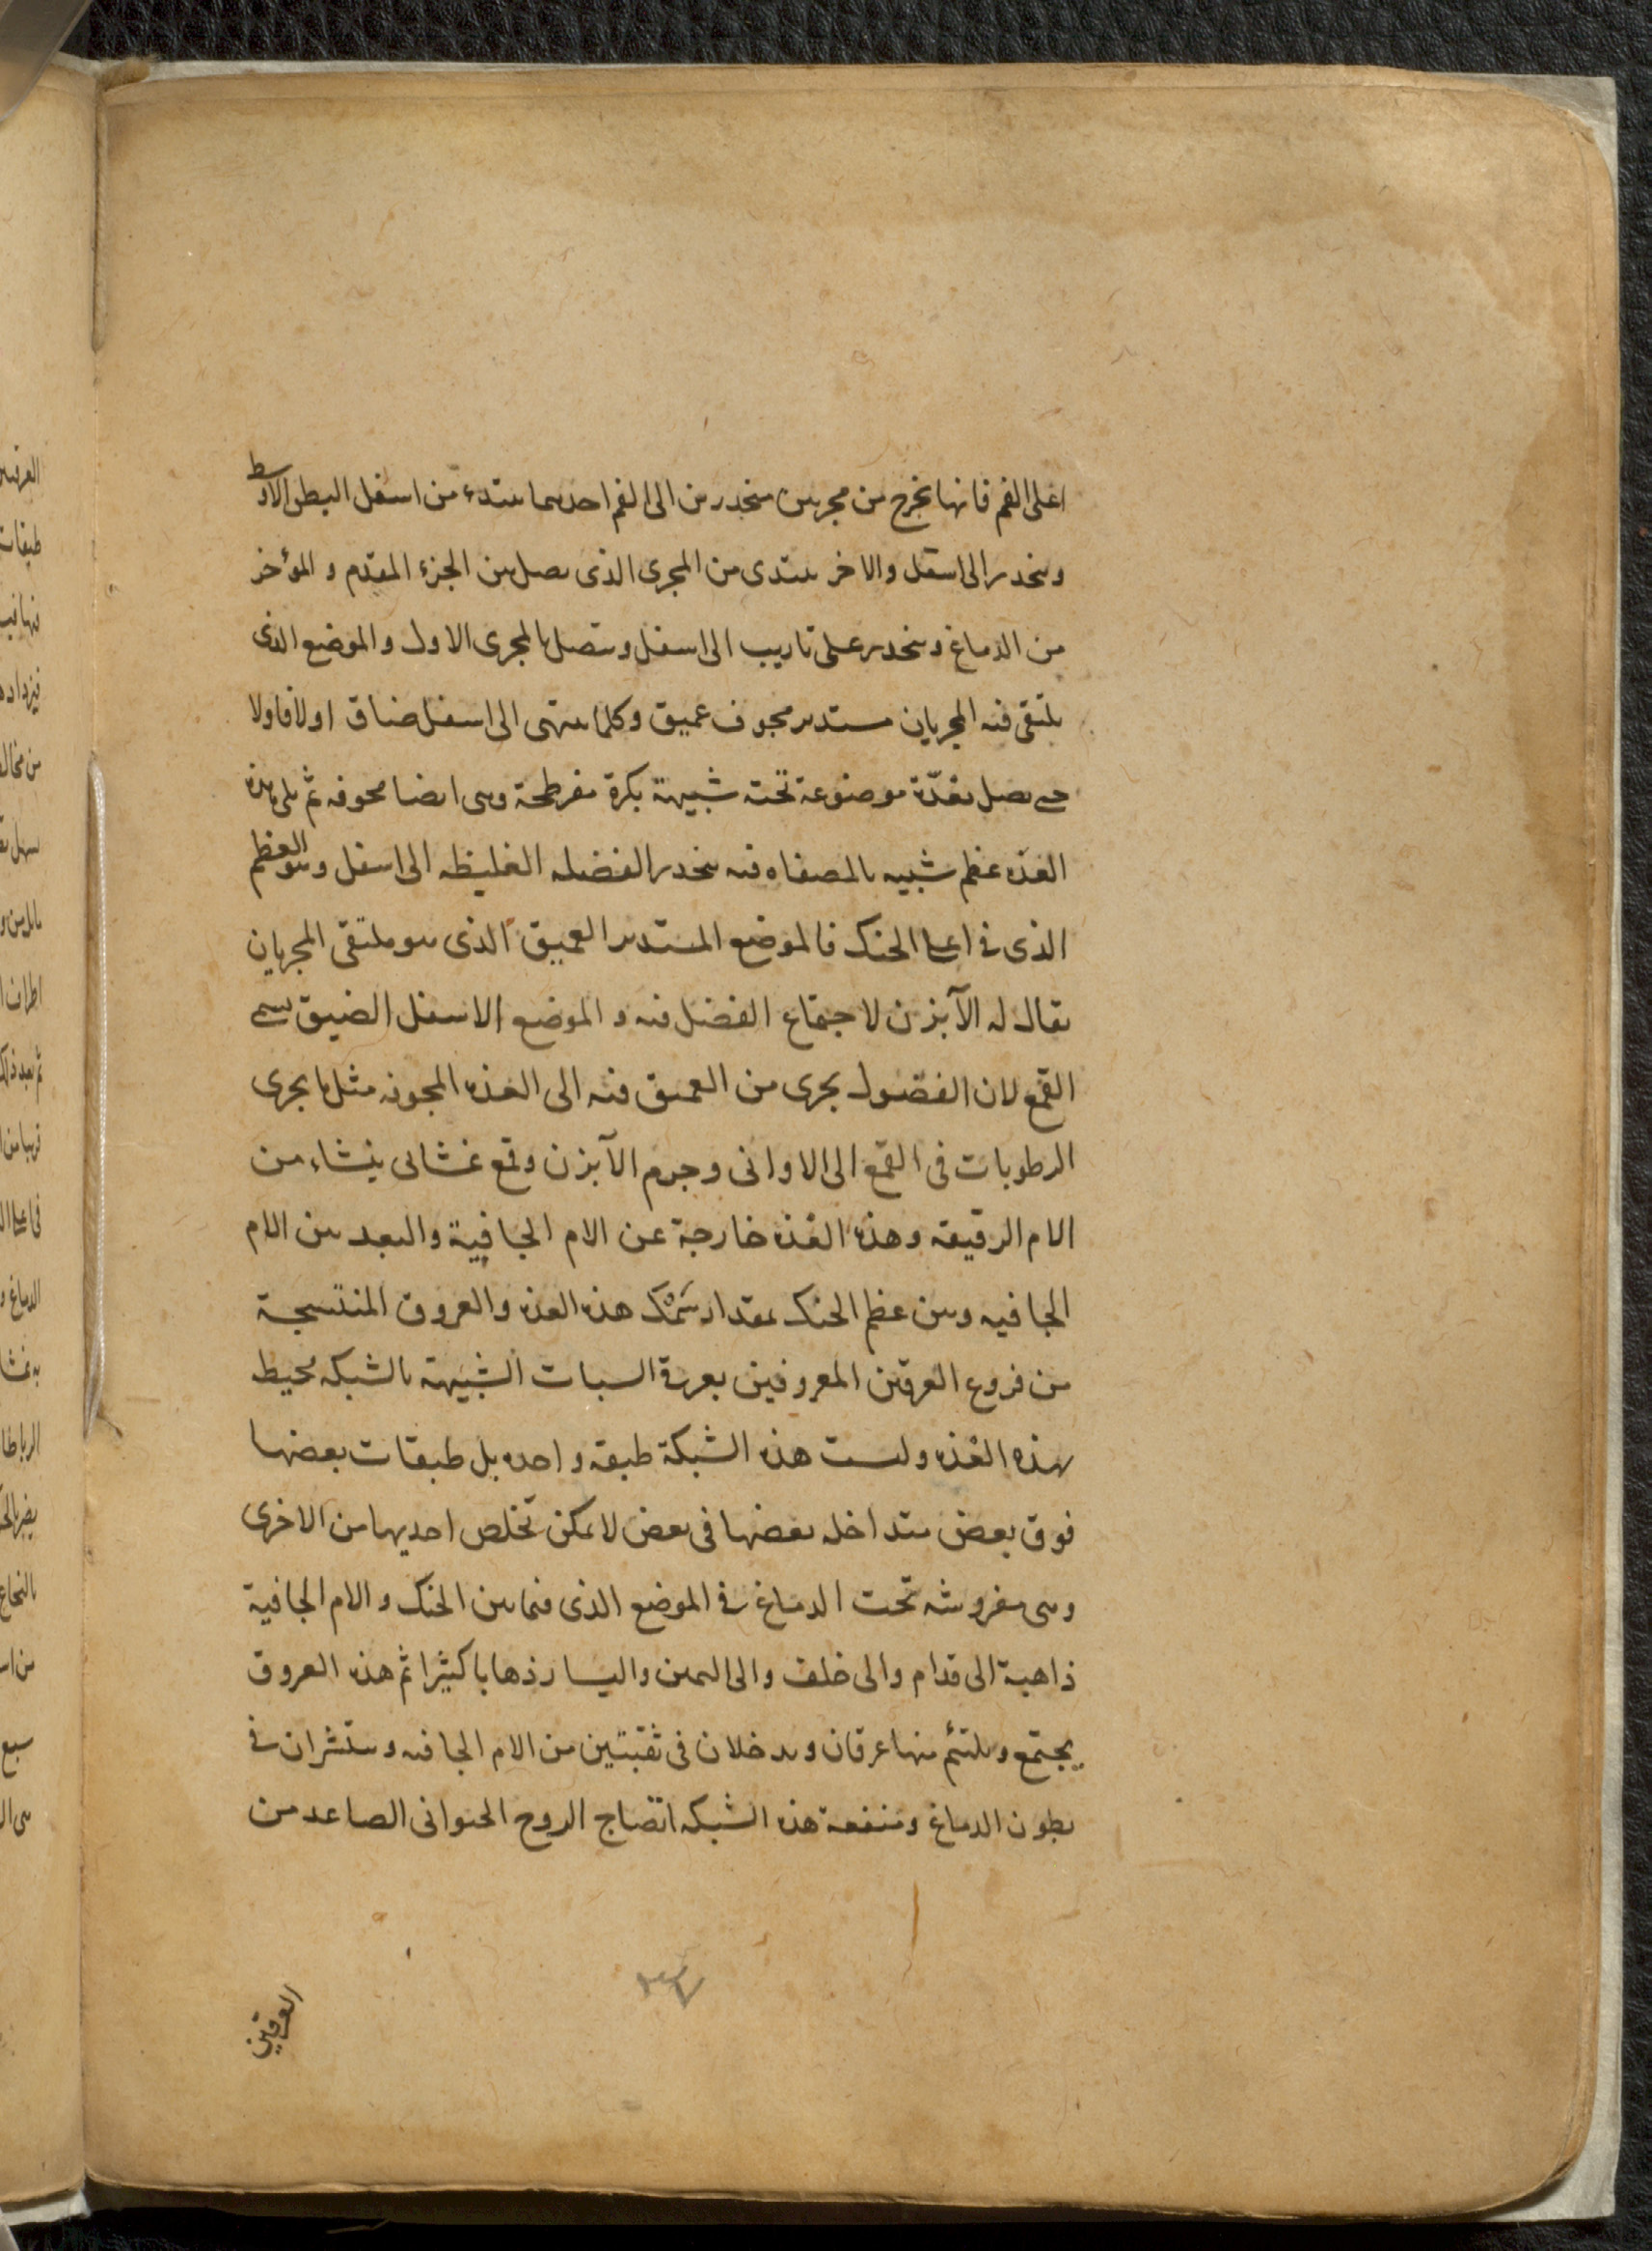 اعلى الفم فانها تخرج من مجريين منحدرين الى الفم احدهما يبتدء من اسفل البطن الاوسط
وينحدر الى اسفل والاخر يبتدى من المجرى الذى يصل بين الجزء المقدم والمؤخر
من الدماغ وينحدر على تاريب الى اسفل ويتصل بالمجرى الاول والموضع الذى
يلتقى فيه المجريان مستدير مجوف عميق وكلما ينتهى الى اسفل ضاق اولا فاولا
حتى يصل بغدّة موضوعة تحته شبيهة بكرة مفرطحة وهى ايضا مجوفه ثم يلى هذه
الغده عظم شبيه بالمصفاه فيه ينحدر الفضله الغليظه الى اسفل وهو العظم
الذى فى اعلى الحنك فالموضع المستدير العميق الذى هو ملتقى المجريان
يقال له الآبزن لاجتماع الفضل فيه والموضع الاسفل الضيق يسمى
القمع لان الفضول يجرى من العميق فيه الى الغده المجوفه مثل ما يجرى
الرطوبات فى القمع الى الاوانى وجرم الآبزن وقمع غشائى ينشاء من
الام الرقيقه وهذه الغده خارجة عن الام الجافية والبعد بين الام
الجافيه وبين عظم الحنك بمقدار سَمْك هذه الغده والعروق المنتسجة
من فروع العرقين المعروفين بعرقى السبات الشبيهة بالشبكه محيط
بهذه الغده وليست هذه الشبكة طبقه واحده بل طبقات بعضها
فوق بعض متداخله بعضها فى بعض لا يمكن تخلص احديها من الاخرى
وهى مفروشه تحت الدماغ فى الموضع الذى فيما بين الحنك والام الجافية
ذاهبة الى قدام والى خلف والى اليمين واليسار ذهابا كثيرا ثم هذه العروق
يجتمع ويلتئم منها عرقان ويدخلان فى ثقبتين من الام الجافيه وينتشران فى
بطون الدماغ ومنفعة هذه الشبكه انضاج الروح الحيوانى الصاعد من
العرقين